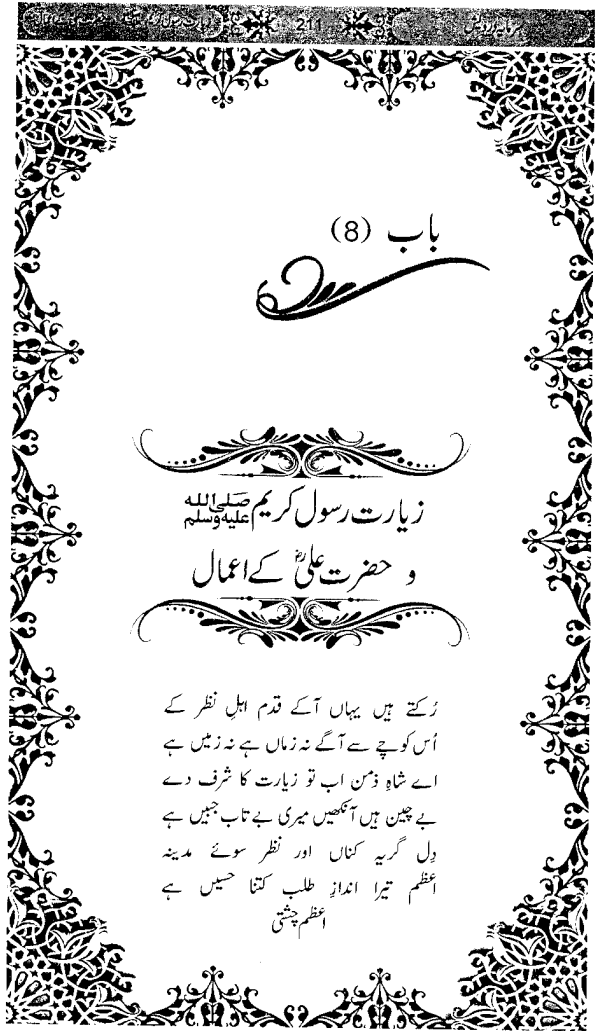 211
باب (8)
زیارت رسول کریم صلى الله عليه وسلم
و حضرت علیؓ کے اعمال
رُکتے ہیں یہاں آکے قدم اہلِ نظر کے
اُس کوچے سے آگے نہ زماں ہے نہ زمیں ہے
اے شاہِ زمن اب تو زیارت کا شرف دے
بے چین ہیں آنکھیں میری بے تاب جبیں ہے
دِل گریہ کناں اور نظر سوئے مدینہ
اعظم تیرا اندازِ طلب کتنا حسیں ہے
اعظم چشتی